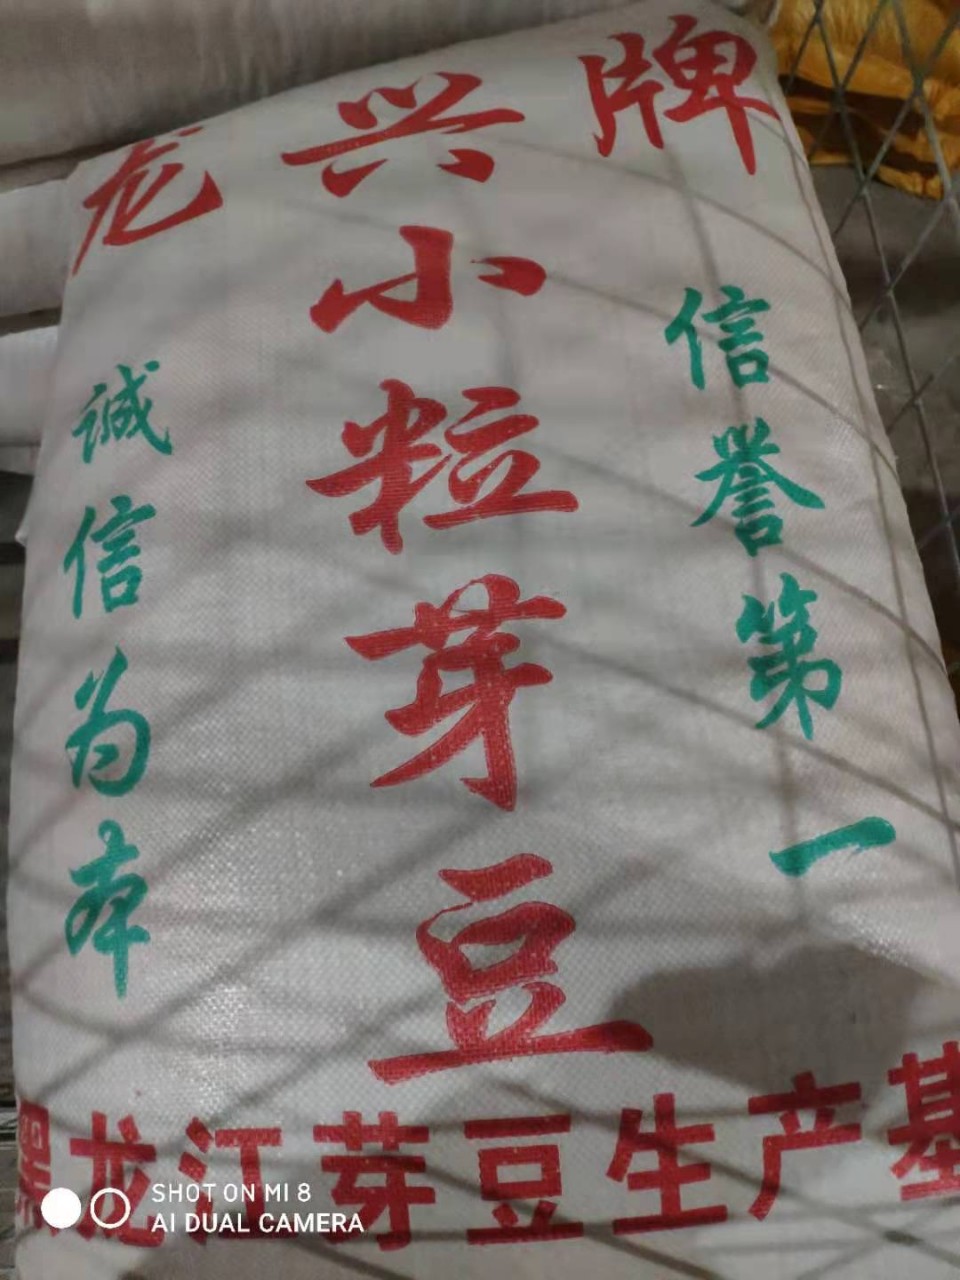 龙兴牌
小粒芽豆
信誉第一
诚信为本
黑龙江芽豆生产基
SHOT ON MI 8
AI DUAL CAMERA